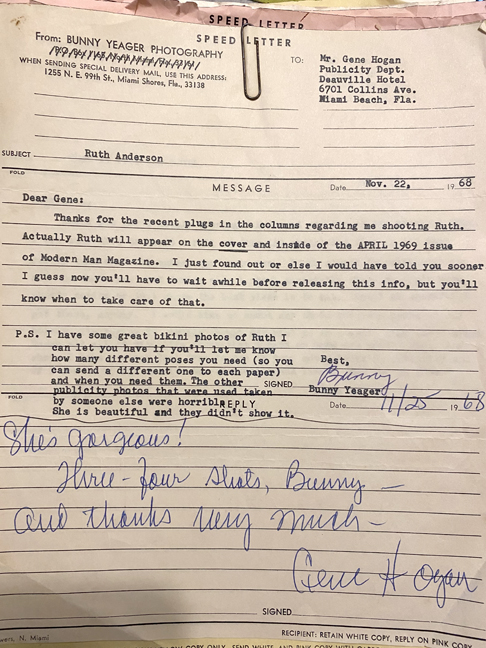 SPEED LETTER
SPEED LETTER
From: BUNNY YEAGER PHOTOGRAPHY
WHEN SENDING SPECIAL DELIVERY MAIL, USE THIS ADDRESS:
1255 N. E. 99th St., Miami Shores, Fla., 33138
TO: Mr. Gene Hogan
Publicity Dept.
Deauville Hotel
6701 Collins Ave.
Miami Beach, Fla.
SUBJECT Ruth Anderson
FOLD
MESSAGE
Date Nov. 22, 19 68
Dear Gene:
Thanks for the recent plugs in the columns regarding me shooting Ruth.
Actually Ruth will appear on the cover and inside of the APRIL 1969 issue
of Modern Man Magazine. I just found out or else I would have told you sooner
I guess now you'll have to wait awhile before releasing this info, but you'll
know when to take care of that.
P.S. I have some great bikini photos of Ruth I
can let you have if you'll let me know
how many different poses you need (so you
can send a different one to each paper)
and when you need them. The other
publicity photos that were used taken
by someone else were horribl
She is beautiful and they didn't show it.
Best,
SIGNED Bunny
Bunny Yeager
FOLD
REPLY
Date 11/25 19 68
She's gorgeous!
Three-four shots, Bunny —
and thanks very much —
Gene Hogan
SIGNED
N. Miami
RECIPIENT: RETAIN WHITE COPY, REPLY ON PINK COPY